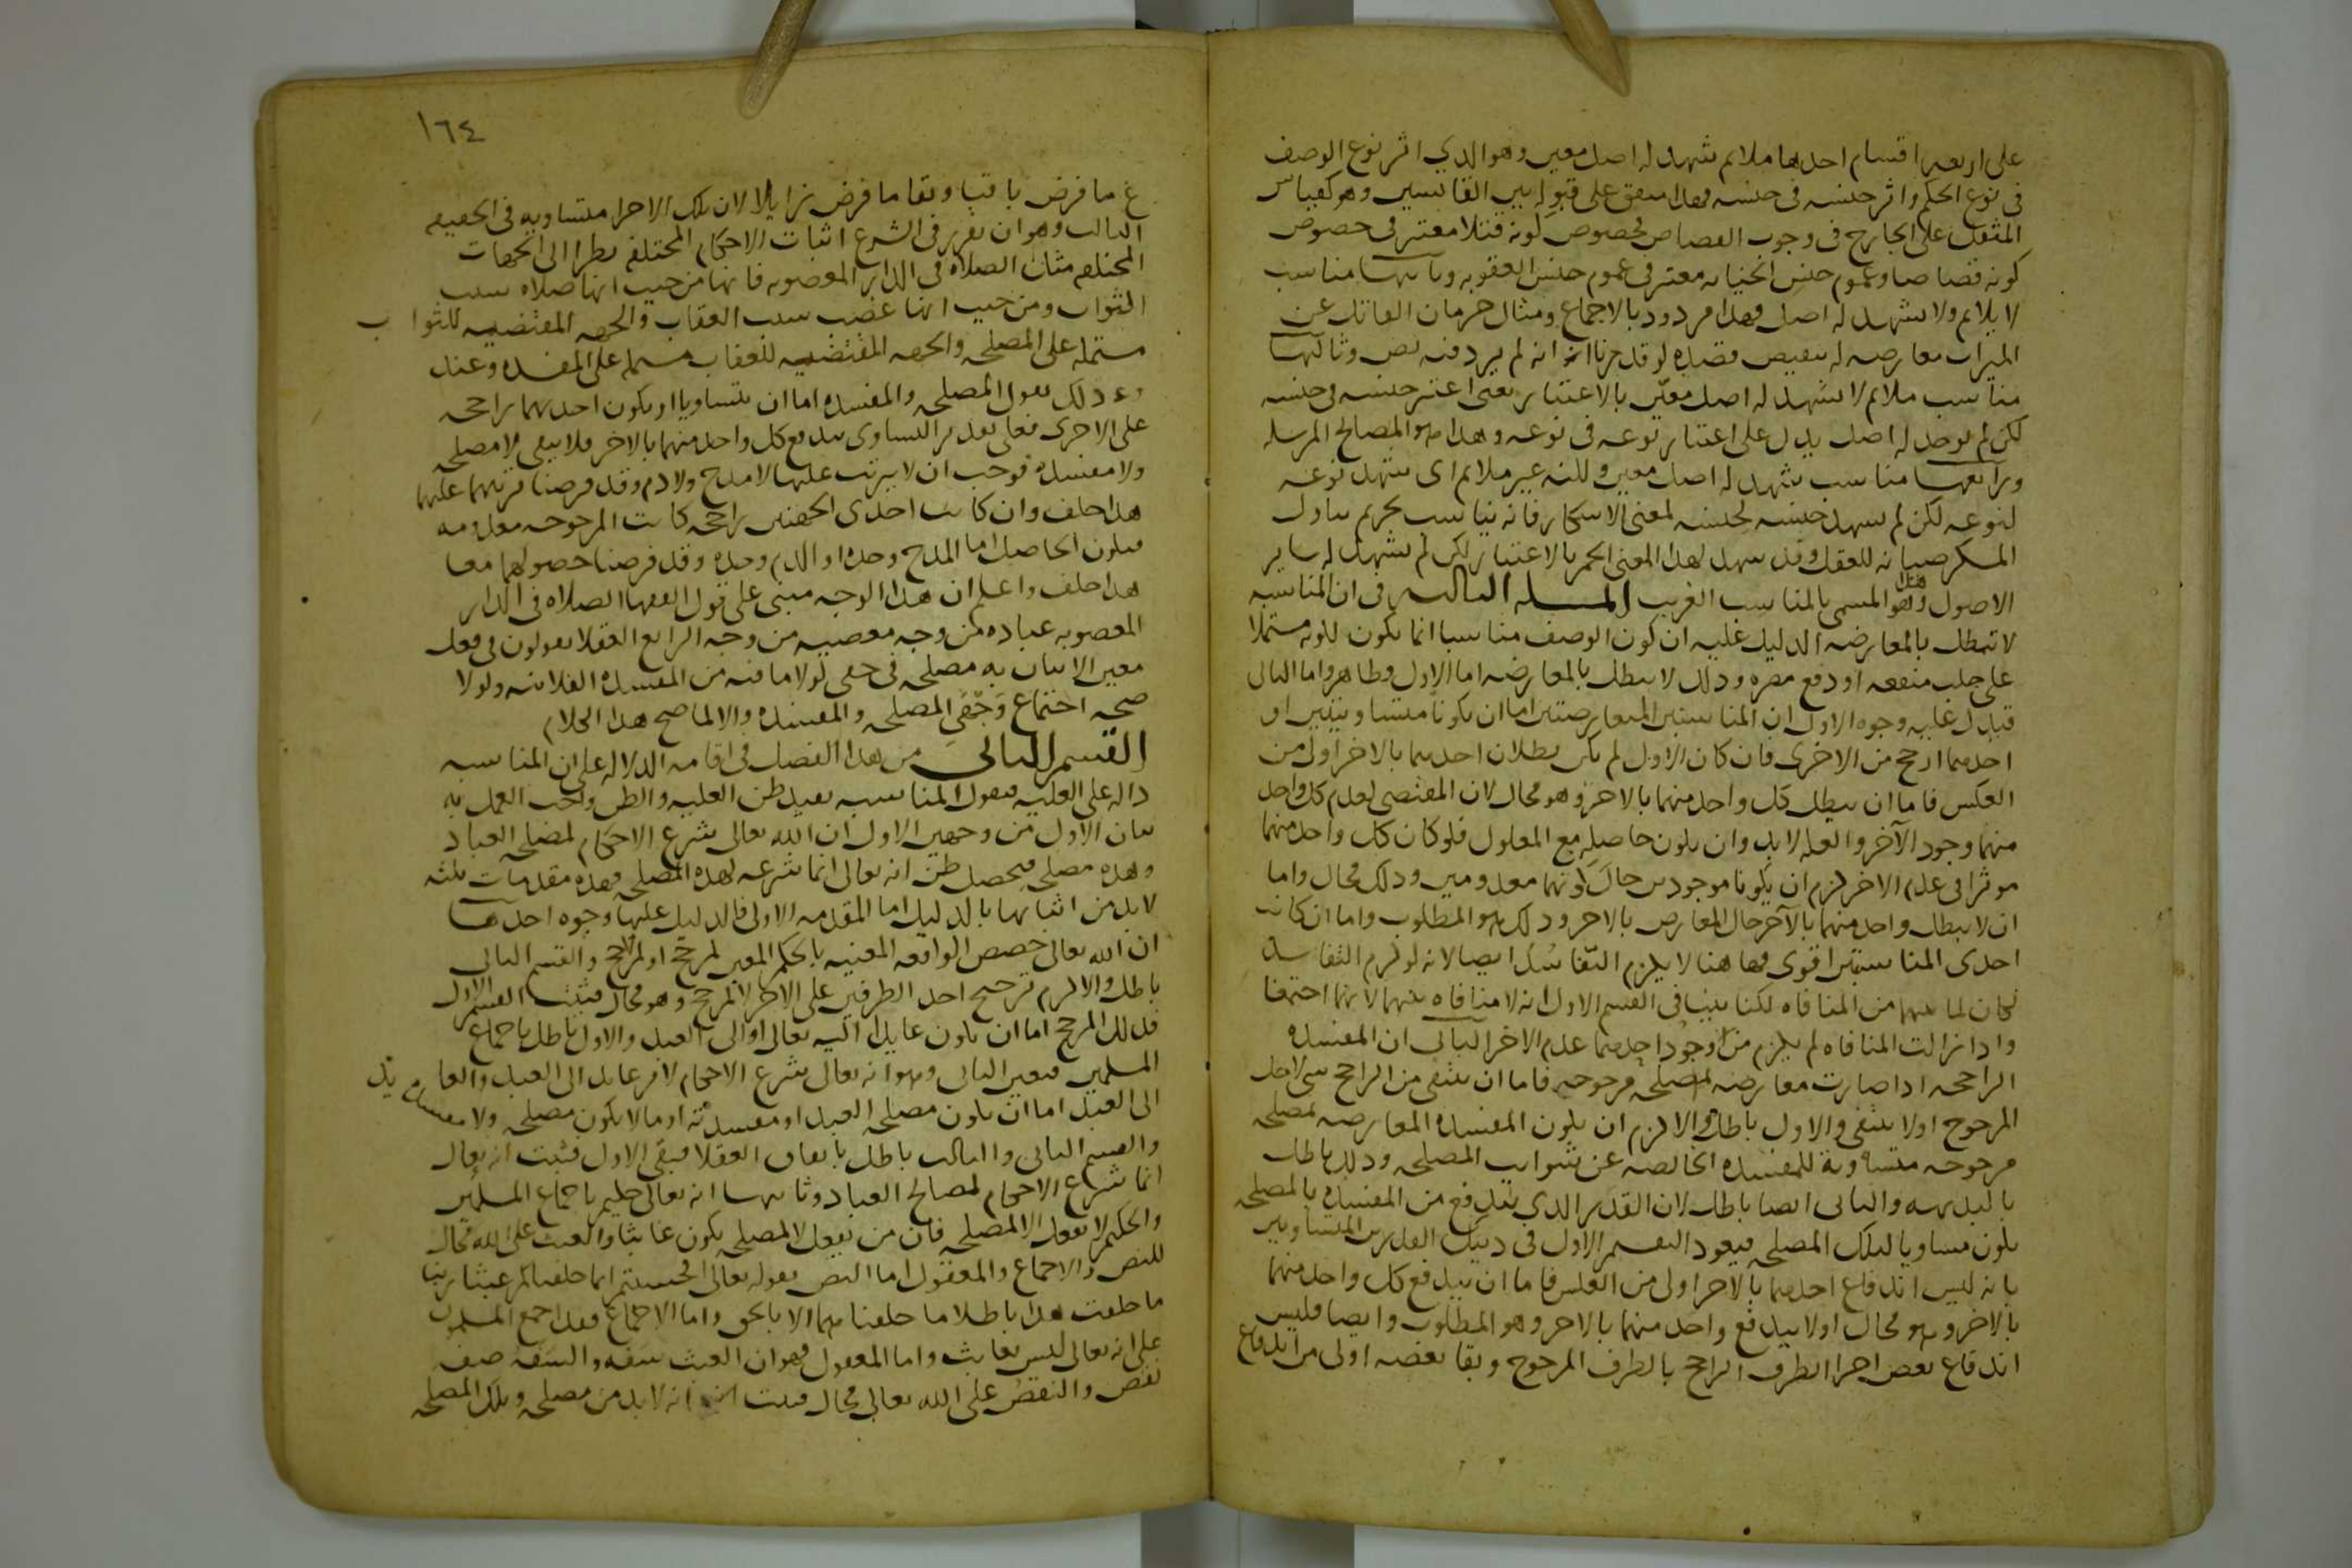 على اربعه اقسام احدها ملائم شهد له اصل معين وهو الذي اثر نوع الوصف
في نوع الحكم واثر جنسه في جنسه فهذا متفق على قبوله بين القائسين وهو كقياس
المثقل على الجارح في وجوب القصاص فخصوص كونه قتلا معتبر في خصوص
كونه قصاصا وعموم جنس الجنايه معتبر في عموم جنس العقوبه وثانيها مناسب
لا يلائم ولا يشهد له اصل فهذا مردود بالاجماع ومثال حرمان القاتل عن
الميراث معارضه له بنقيض قصده لو قدرنا انه لم يرد فيه نص وثالثها
مناسب ملائم لا يشهد له اصل معين بالاعتبار يعنى اعتبر جنسه في جنسه
لكن لم يوجد له اصل يدل على اعتبار نوعه في نوعه وهذا هو المصالح المرسله
ورابعها مناسب شهد له اصل معين ولكنه غير ملائم اى شهد نوعه
لنوعه لكن لم يشهد جنسه لجنسه كمعنى الاسكار فانه يناسب تحريم تناول
المسكر صيانه للعقل وقد شهد لهذا المعنى الخمر بالاعتبار لكن لم يشهد له ساير
الاصول وهذا هو المسمى بالمناسب الغريب المسله الثالثه في ان المناسبه
لا تبطل بالمعارضه الدليل عليه ان كون الوصف مناسبا انما يكون لكونه مشتملا
على جلب منفعه او دفع مضره وذلك لا يبطل بالمعارضه اما الاول فظاهر واما الثاني
فيدل عليه وجوه الاول ان المناسبتين المتعارضتين اما ان يكونا متساويتين او
احدهما ارجح من الاخرى فان كان الاول لم يكن بطلان احديهما بالاخر اولى من
العكس فاما ان يبطل كل واحد منهما بالاخر وهو محال لان المقتضى لعدم كل واحد
منهما وجود الآخر والعله لا بد وان يكون حاصله مع المعلول فلو كان كل واحد منهما
موثرا في عدم الاخر لزم ان يكونا موجودين حال كونهما معدومين وذلك محال واما
ان لا يبطل واحد منهما بالآخر حال التعارض بالاخر وذلك هو المطلوب واما ان كانت
احدى المناسبتين اقوى فها هنا لا يلزم التفاسد ايضا لانه لو لزم التفاسد
لكان لما بينهما من المنافاه لكنا بينا في القسم الاول انه لا منافاه بينهما لانهما اجتمعا
واذا زالت المنافاه لم يلزم من وجود احديهما عدم الاخر الثاني ان المفسده
الراجحه اذا صارت معارضه لمصلحه مرجوحه فاما ان ينتفى من الراجح شى لاجل
المرجوح اولا ينتفى والاول باطل والا لزم ان يكون المفسده المعارضه لمصلحه
مرجوحه متساويه للمفسده الخالصه عن شوايب المصلحه وذلك باطل
بالبديهه والثاني ايضا باطل لان القدر الذي يندفع من المفسده بالمصلحه
يكون مساويا لتلك المصلحه فيعود التقسيم الاول في ذينك القدرين المتساويين
بانه ليس اندفاع احديهما بالاخر اولى من العكس فاما ان يندفع كل واحد منهما
بالاخر وهو محال اولا يندفع واحد منهما بالاخر وهو المطلوب وايضا فليس
اندفاع بعض اجزا الطرف الراجح بالطرف المرجوح وبقا بعضه اولى من اندفاع
١٦٤
ما فرض باقيا وبقا ما فرض زايلا لان تلك الاجزا متساويه في الحقيقه
الثالث وهو ان تقرر في الشرع اثبات الاحكام المختلفه نظرا الى الجهات
المختلفه مثل الصلاه في الدار المغصوبه فانها من حيث انها صلاه سبب
الثواب ومن حيث انها غصب سبب العقاب والجهه المقتضيه للثواب
مشتمله على المصلحه والجهه المقتضيه للعقاب مشتمله على المفسده وعند
ذلك نقول المصلحه والمفسده اما ان يتساويا او يكون احديهما راجحه
على الاخرى فعلى تقدير التساوى يندفع كل واحد منهما بالاخر فلا يبقى لا مصلحه
ولا مفسده فوجب ان لا يترتب عليها لا مدح ولا ذم وقد فرضنا ترتبهما عليهما
هذا خلف وان كانت احدى الجهتين راجحه كانت المرجوحه معدومه
فيكون الحاصل اما المدح وحده او الذم وحده وقد فرضنا حصولهما معا
هذا خلف واعلم ان هذا الوجه مبنى على قول الفقها الصلاه في الدار
المغصوبه عباده من وجه معصيه من وجه الرابع العقلا يقولون في فعل
معين الاتيان به مصلحه في حقى لولا ما فيه من المفسده الفلانيه ولولا
صحه اجتماع وجهى المصلحه والمفسده والا لما صح هذا الكلام
القسم الثاني من هذا الفصل في اقامه الدلاله على ان المناسبه
داله على العليه فنقول المناسبه تفيد ظن العليه والظن واجب العمل به
بيان الاول من وجهين الاول ان الله تعالى شرع الاحكام لمصلحه العباد
وهذه مصلحه فيحصل ظن انه تعالى انما شرعه لهذه المصلحه فهذه مقدمات ثلثه
لا بد من اثباتها بالدليل اما المقدمه الاولى فالدليل عليها وجوه احدها
ان الله تعالى خصص الواقعه المعينه بالحكم المعين لمرجح اولا لمرجح والقسم الثاني
باطل والا لزم ترجيح احد الطرفين على الاخر لا لمرجح وهو محال فثبت القسم الاول
فذلك المرجح اما ان يكون عايدا اليه تعالى او الى العبد والاول باطل باجماع
المسلمين فتعين الثاني وهو انه تعالى شرع الاحكام لامر عايد الى العبد والعايد
الى العبد اما ان يكون مصلحه العبد او مفسدته او ما لا يكون مصلحه ولا مفسده
والقسم الثاني والثالث باطل باتفاق العقلا فبقى الاول فثبت انه تعالى
انما شرع الاحكام لمصالح العباد وثانيها انه تعالى حكيم باجماع المسلمين
والحكيم لا يفعل الا لمصلحه فان من يفعل لا لمصلحه يكون عابثا والعبث على الله محال
للنص والاجماع والمعقول اما النص فقوله تعالى افحسبتم انما خلقناكم عبثا ربنا
ما خلقت هذا باطلا ما خلقناهما الا بالحق واما الاجماع فقد اجمع المسلمون
على انه تعالى ليس بعابث واما المعقول فهو ان العبث سفه والسفه صفه
نقص والنقص على الله تعالى محال فثبت انه لا بد من مصلحه وتلك المصلحه